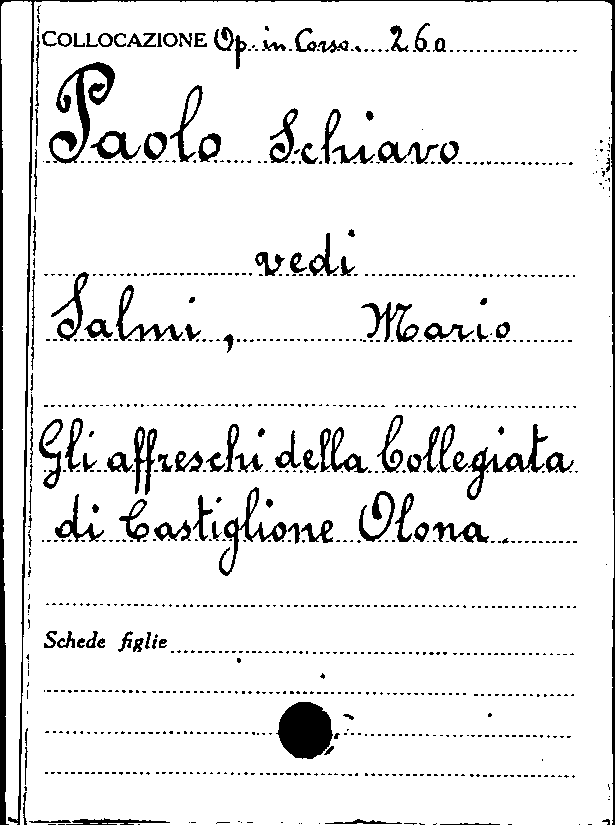 COLLOCAZIONE Op. in Corso. 260
Paolo Schiavo
vedi
Salmi, Mario
Gli affreschi della Collegiata
di Castiglione Olona.
Schede figlie